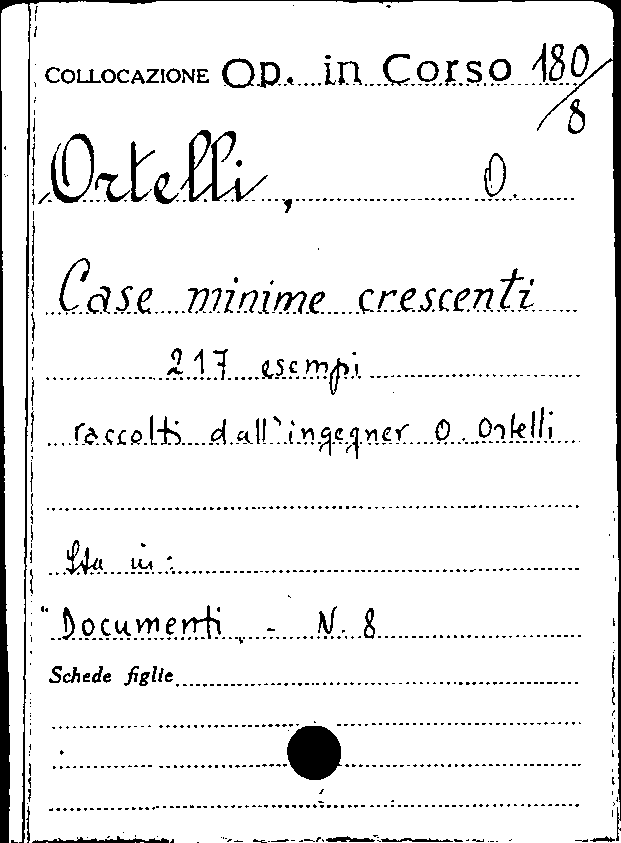 COLLOCAZIONE Op. in Corso 180/8
Ortelli, O.
Case minime crescenti
217 esempi
raccolti dall'ingegner O. Ortelli
Sta in:
"Documenti, - N. 8
Schede figlie